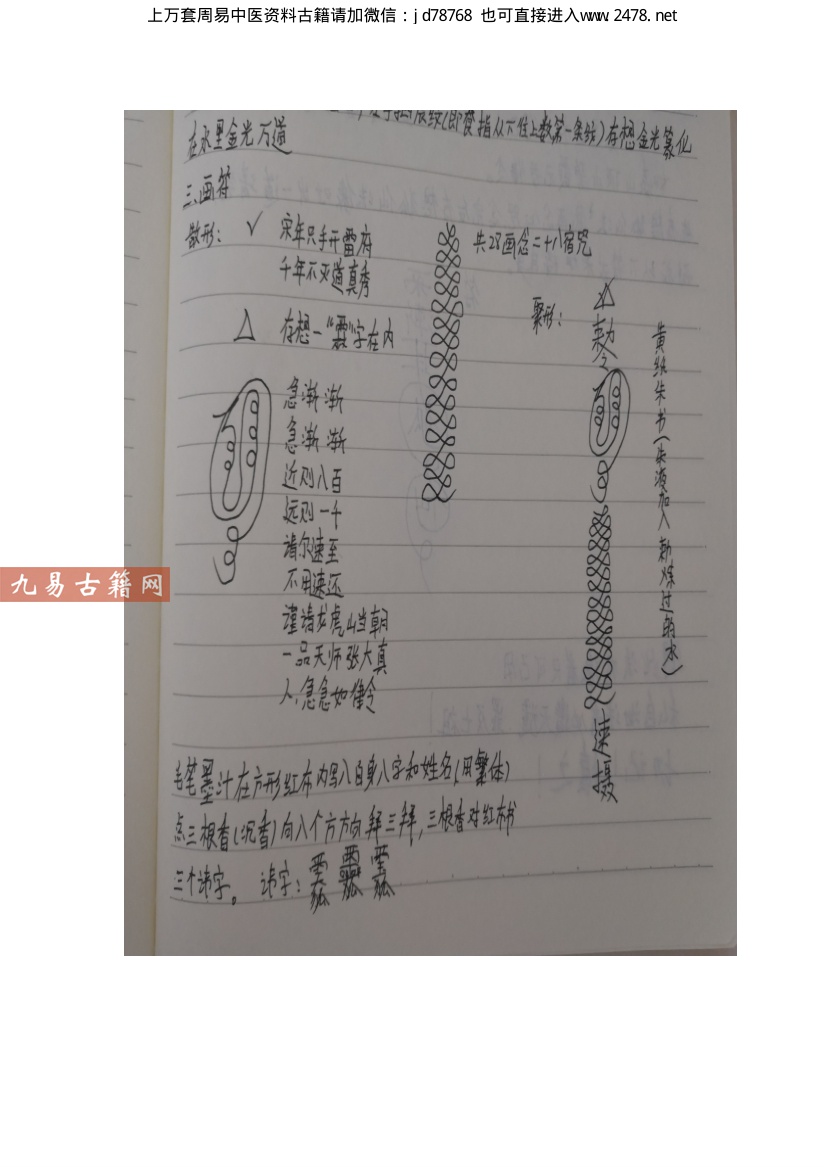 上万套周易中医资料古籍请加微信：jd78768 也可直接进入www.2478.net
指从下往上数第一条线)存想金光篆化
在水里金光万道
三、画符
散形： 宋年只手开雷府
千年不灭道真秀
共28画念二十八宿咒
聚形：
存想一“ ”字在内
急渐渐
急渐渐
近则八百
远则一千
请尔速至
不用速还
谨请龙虎山当朝
一品天师张大真
人，急急如律令
敕令
速摄
黄纸朱书(朱液加入 勅炼过的水)
九易古籍网
毛笔墨汁在方形红布内写八自身八字和姓名(用繁体)
点三根香(沉香)向八个方方向拜三拜，三根香对红布书
三个讳字。 讳字：